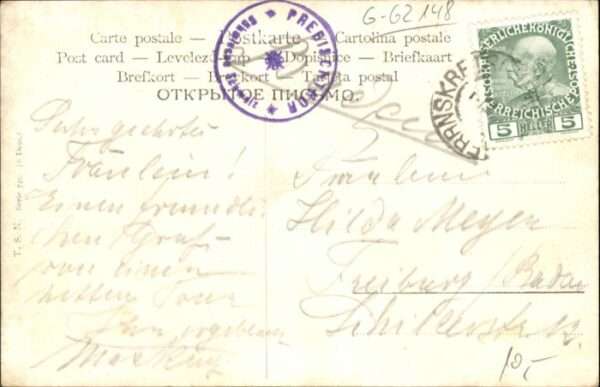 G-62148
Carte postale — Postkarte — Cartolina postale
Post card — Levelező-lap — Dopisnice — Briefkaart
Brefkort — Brevkort — Tarjeta postal
ОТКРЫТОЕ ПИСЬМО.
PREBISCHTHOR
KAISERLICHEKÖNIGLICHE
ÖSTERREICHISCHE POST
5 HELLER 5
HERRNSKRE
T. S. N. Serie
Sehr geehrtes
Fräulein!
Einen freundli-
chen Gruß
von einer
netten Tour
Ihr ergebener
Fräulein
Hilda Meyer
Freiburg / Baden
Schillerstr.
10,-